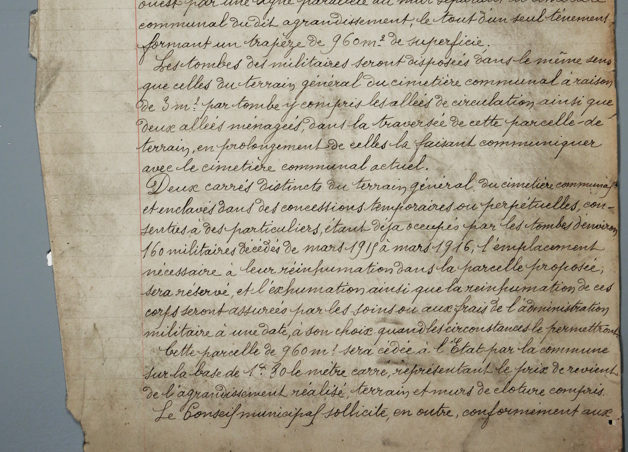 ouest par une ligne parallèle au mur séparatif du cimetière
communal du dit agrandissement, le tout d'un seul tènement
formant un trapèze de 960m² de superficie.
Les tombes des militaires seront disposés dans le même sens
que celles du terrain général du cimetière communal à raison
de 3 m² par tombe y compris les allées de circulation ainsi que
deux allées ménagées, dans la traversée de cette parcelle de
terrain, en prolongement de celles la faisant communiquer
avec le cimetière communal actuel.
Deux carrés distincts du terrain général du cimetière communal
et enclavés dans des concessions temporaires ou perpétuelles, con-
senties à des particuliers, étant déjà occupés par les tombes d'environ
160 militaires décédés de mars 1915 à mars 1916, l'emplacement
nécessaire à leur réinhumation dans la parcelle proposée,
sera réservé, et l'exhumation ainsi que la réinhumation de ces
corps seront assurées par les soins ou aux frais de l'administration
militaire à une date, à son choix, quand les circonstances le permettront.
Cette parcelle de 960 m² sera cédée à l'Etat par la commune
sur la base de 1f 80 le mètre carré, représentant le prix de revient
de l'agrandissement réalisé, terrain et murs de clôture compris.
Le Conseil municipal sollicite, en outre, conformément aux